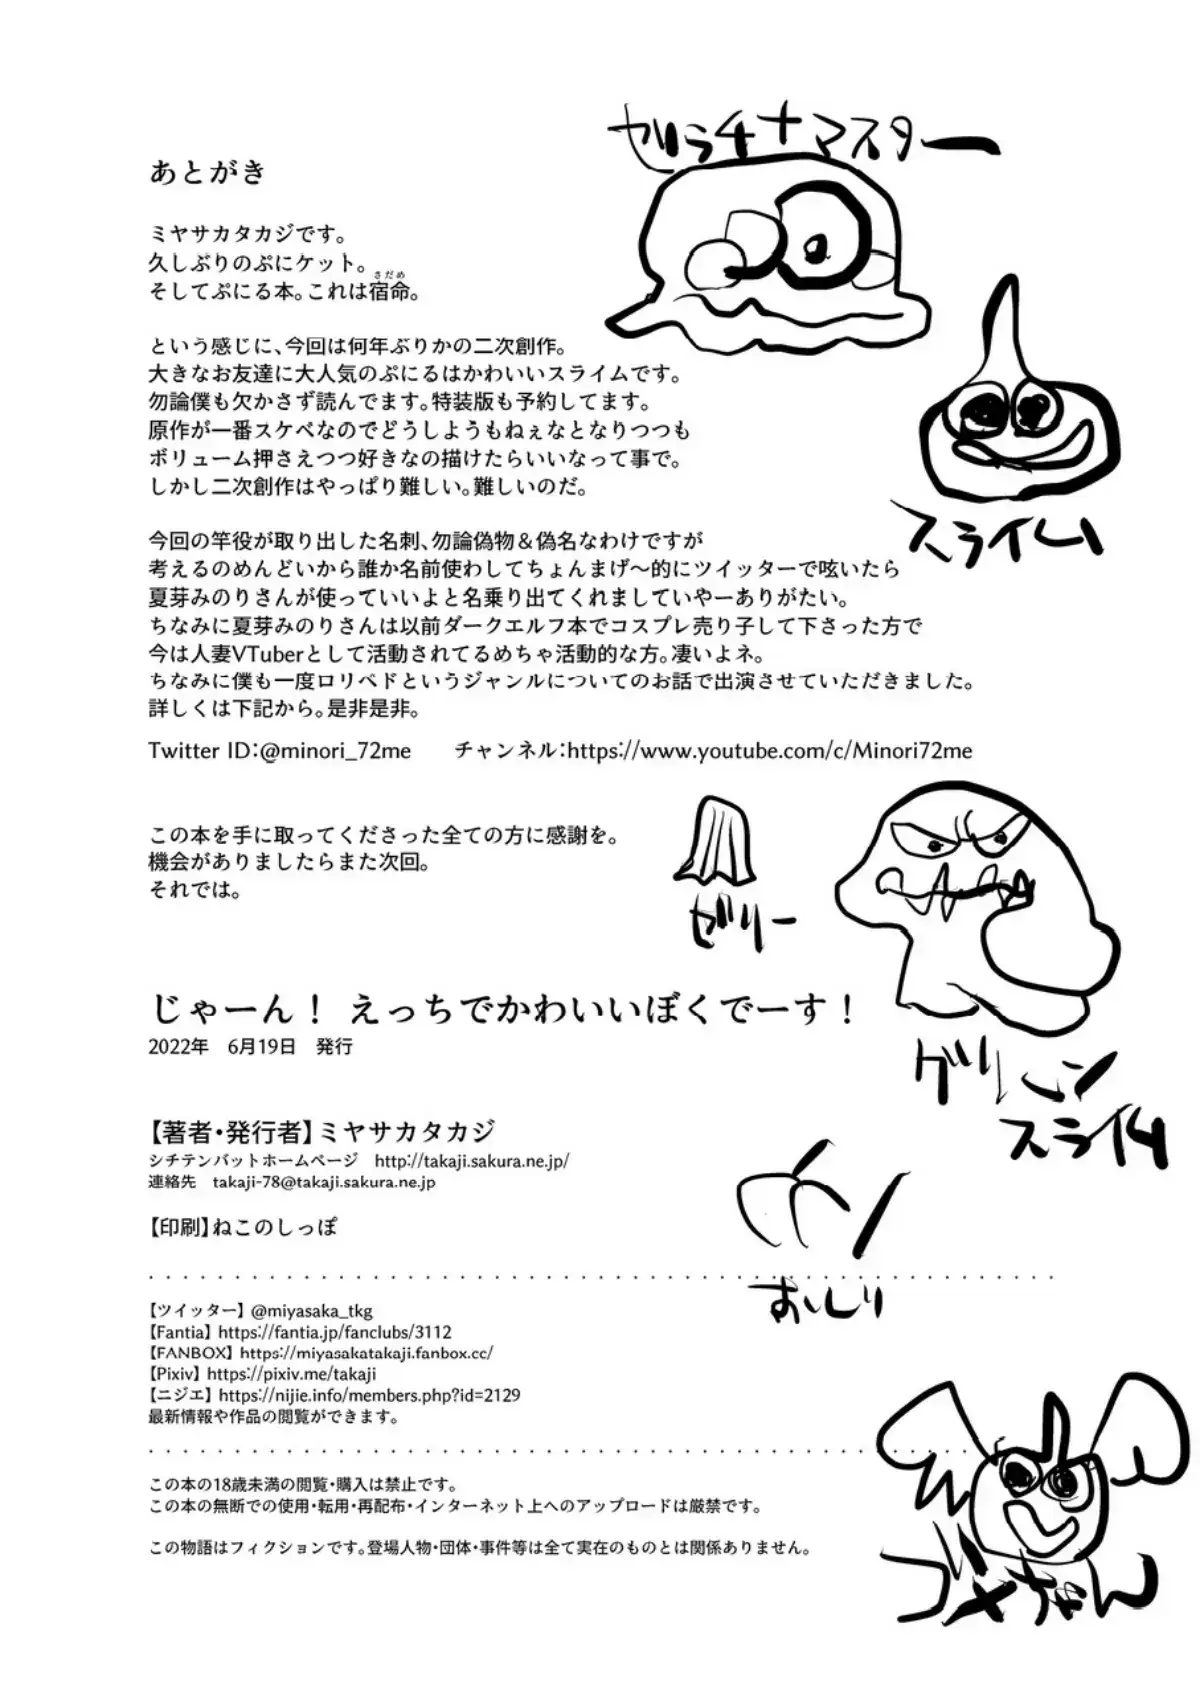 あとがき
ミヤサカタカジです。
久しぶりのぷにケット。
さだめ
そしてぷにる本。これは宿命。
という感じに、今回は何年ぶりかの二次創作。
大きなお友達に大人気のぷにるはかわいいスライムです。
勿論僕も欠かさず読んでます。特装版も予約してます。
原作が一番スケベなのでどうしようもねぇなとなりつつも
ボリューム押さえつつ好きなの描けたらいいなって事で。
しかし二次創作はやっぱり難しい。難しいのだ。
今回の竿役が取り出した名刺、勿論偽物＆偽名なわけですが
考えるのめんどいから誰か名前使わしてちょんまげ～的にツイッターで呟いたら
夏芽みのりさんが使っていいよと名乗り出てくれましていやーありがたい。
ちなみに夏芽みのりさんは以前ダークエルフ本でコスプレ売り子して下さった方で
今は人妻VTuberとして活動されてるめちゃ活動的な方。凄いよネ。
ちなみに僕も一度ロリペドというジャンルについてのお話で出演させていただきました。
詳しくは下記から。是非是非。
Twitter ID：@minori_72me　　チャンネル：https://www.youtube.com/c/Minori72me
この本を手に取ってくださった全ての方に感謝を。
機会がありましたらまた次回。
それでは。
じゃーん！ えっちでかわいいぼくでーす！
2022年　6月19日　発行
【著者・発行者】ミヤサカタカジ
シチテンバットホームページ　http://takaji.sakura.ne.jp/
連絡先　takaji-78@takaji.sakura.ne.jp
【印刷】ねこのしっぽ
【ツイッター】 @miyasaka_tkg
【Fantia】 https://fantia.jp/fanclubs/3112
【FANBOX】 https://miyasakatakaji.fanbox.cc/
【Pixiv】 https://pixiv.me/takaji
【ニジエ】 https://nijie.info/members.php?id=2129
最新情報や作品の閲覧ができます。
この本の18歳未満の閲覧・購入は禁止です。
この本の無断での使用・転用・再配布・インターネット上へのアップロードは厳禁です。
この物語はフィクションです。登場人物・団体・事件等は全て実在のものとは関係ありません。
ゼラチナマスター
スライム
ゼリー
グリーン
スライム
おいしり
ゴメちゃん